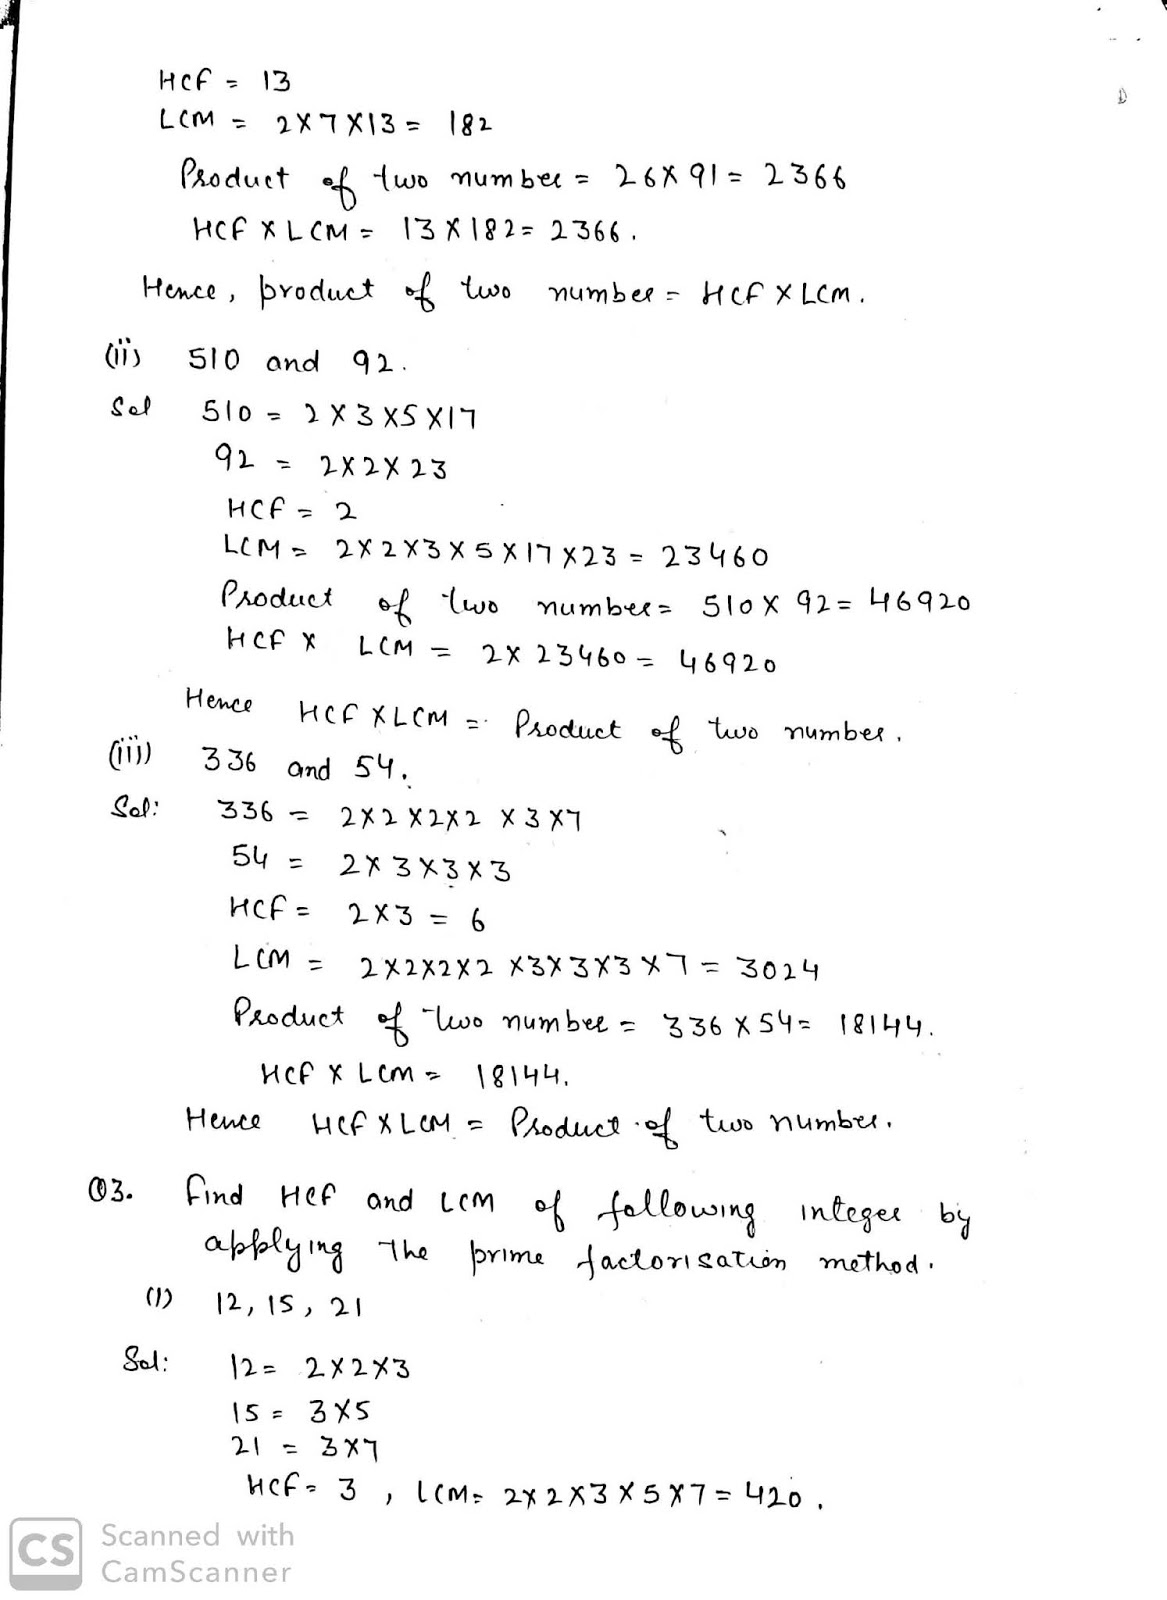 HCF = 13
LCM = 2×7×13 = 182
Product of two number = 26×91 = 2366
HCF × LCM = 13×182 = 2366.
Hence, product of two number = HCF × LCM.
(ii) 510 and 92.
Sol 510 = 2×3×5×17
92 = 2×2×23
HCF = 2
LCM = 2×2×3×5×17×23 = 23460
Product of two number = 510×92 = 46920
HCF × LCM = 2×23460 = 46920
Hence HCF×LCM = Product of two number.
(iii) 336 and 54.
Sol: 336 = 2×2×2×2×3×7
54 = 2×3×3×3
HCF = 2×3 = 6
LCM = 2×2×2×2×3×3×3×7 = 3024
Product of two number = 336×54 = 18144.
HCF × LCM = 18144.
Hence HCF×LCM = Product of two number.
Q3. find HCF and LCM of following integer by
applying the prime factorisation method.
(1) 12, 15, 21
Sol: 12 = 2×2×3
15 = 3×5
21 = 3×7
HCF = 3, LCM = 2×2×3×5×7 = 420.
CS Scanned with
CamScanner